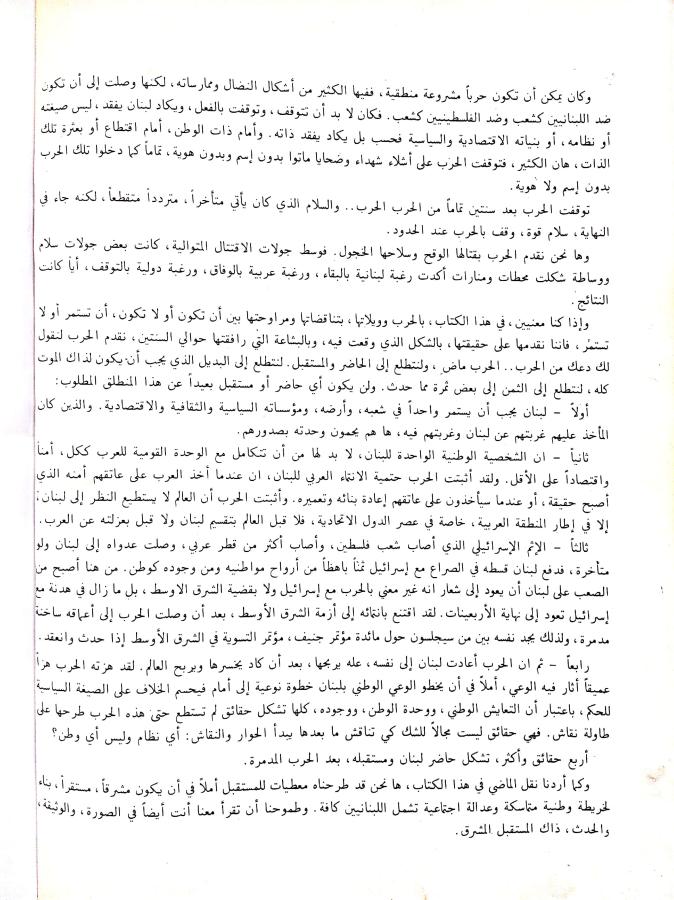 وكان يمكن أن تكون حرباً مشروعة منطقية، ففيها الكثير من أشكال النضال وممارساته، لكنها وصلت إلى أن تكون
ضد اللبنانيين كشعب وضد الفلسطينيين كشعب. فكان لا بد أن تتوقف، وتوقفت بالفعل، ويكاد لبنان يفقد، ليس صيغته
أو نظامه، أو بنياته الاقتصادية والسياسية فحسب بل يكاد يفقد ذاته. وأمام ذات الوطن، أمام اقتطاع أو بعثرة تلك
الذات، هان الكثير، فتوقفت الحرب على أشلاء شهداء وضحايا ماتوا بدون إسم وبدون هوية، تماماً كما دخلوا تلك الحرب
بدون إسم ولا هوية.
توقفت الحرب بعد سنتين تماماً من الحرب الحرب.. والسلام الذي كان يأتي متأخراً، متردداً متقطعاً، لكنه جاء في
النهاية، سلام قوة، وقف بالحرب عند الحدود.
وها نحن نقدم الحرب بقتالها الوقح وسلاحها الخجول. فوسط جولات الاقتتال المتوالية، كانت بعض جولات سلام
ووساطة شكلت محطات ومنارات أكدت رغبة لبنانية بالبقاء، ورغبة عربية بالوفاق، ورغبة دولية بالتوقف، أياً كانت
النتائج.
وإذا كنا معنيين، في هذا الكتاب، بالحرب وويلاتها، بتناقضاتها ومراوحتها بين أن تكون أو لا تكون، أن تستمر أو لا
تستمر، فاننا نقدمها على حقيقتها، بالشكل الذي وقعت فيه، وبالبشاعة التي رافقتها حوالي السنتين، نقدم الحرب لنقول
لك دعك من الحرب.. الحرب ماض، ولنتطلع إلى الحاضر والمستقبل. لنتطلع إلى البديل الذي يجب أن يكون لذاك الموت
كله، لنتطلع إلى الثمن إلى بعض ثمرة مما حدث. ولن يكون أي حاضر أو مستقبل بعيداً عن هذا المنطلق المطلوب:
أولاً – لبنان يجب أن يستمر واحداً في شعبه، وأرضه، ومؤسساته السياسية والثقافية والاقتصادية. والذين كان
المأخذ عليهم غربتهم عن لبنان وغربتهم فيه، ها هم يحمون وحدته بصدورهم.
ثانياً – ان الشخصية الوطنية الواحدة للبنان، لا بد لها من أن تتكامل مع الوحدة القومية للعرب ككل، أمناً
واقتصاداً على الأقل. ولقد أثبتت الحرب حتمية الانتماء العربي للبنان، ان عندما أخذ العرب على عاتقهم أمنه الذي
أصبح حقيقة، أو عندما سيأخذون على عاتقهم إعادة بنائه وتعميره. وأثبتت الحرب أن العالم لا يستطيع النظر إلى لبنان،
إلا في إطار المنطقة العربية، خاصة في عصر الدول الاتحادية، فلا قبل العالم بتقسيم لبنان ولا قبل بعزلته عن العرب.
ثالثاً – الإثم الإسرائيلي الذي أصاب شعب فلسطين، وأصاب أكثر من قطر عربي، وصلت عدواه إلى لبنان ولو
متأخرة، فدفع لبنان قسطه في الصراع مع إسرائيل ثمناً باهظاً من أرواح مواطنيه ومن وجوده كوطن. من هنا أصبح من
الصعب على لبنان أن يعود إلى شعار انه غير معني بالحرب مع إسرائيل ولا بقضية الشرق الاوسط، بل ما زال في هدنة مع
إسرائيل تعود إلى نهاية الأربعينات. لقد اقتنع بانتمائه إلى أزمة الشرق الأوسط، بعد أن وصلت الحرب إلى أعماقه ساخنة
مدمرة، ولذلك يجد نفسه بين من سيجلسون حول مائدة مؤتمر جنيف، مؤتمر التسوية في الشرق الأوسط إذا حدث وانعقد.
رابعاً – ثم ان الحرب أعادت لبنان إلى نفسه، عله يربحها، بعد أن كاد يخسرها ويربح العالم. لقد هزته الحرب هزاً
عميقاً أثار فيه الوعي، أملاً في أن يخطو الوعي الوطني بلبنان خطوة نوعية إلى أمام فيحسم الخلاف على الصيغة السياسية
للحكم، باعتبار أن التعايش الوطني، ووحدة الوطن، ووجوده، كلها تشكل حقائق لم تستطع حتى هذه الحرب طرحها على
طاولة نقاش. فهي حقائق ليست مجالاً للشك كي تناقش ما بعدها يبدأ الحوار والنقاش: أي نظام وليس أي وطن؟
أربع حقائق وأكثر، تشكل حاضر لبنان ومستقبله، بعد الحرب المدمرة.
وكما أردنا نقل الماضي في هذا الكتاب، ها نحن قد طرحناه معطيات للمستقبل أملاً في أن يكون مشرقاً، مستقراً، بناء
لخريطة وطنية متماسكة وعدالة اجتماعية تشمل اللبنانيين كافة. وطموحنا أن تقرأ معنا أنت أيضاً في الصورة، والوثيقة،
والحدث، ذاك المستقبل المشرق.